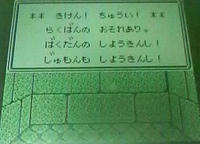 ** きけん! ちゅうい! **
らくばんの おそれあり。
ばくだんの しようきんし!
じゅもんも しようきんし!